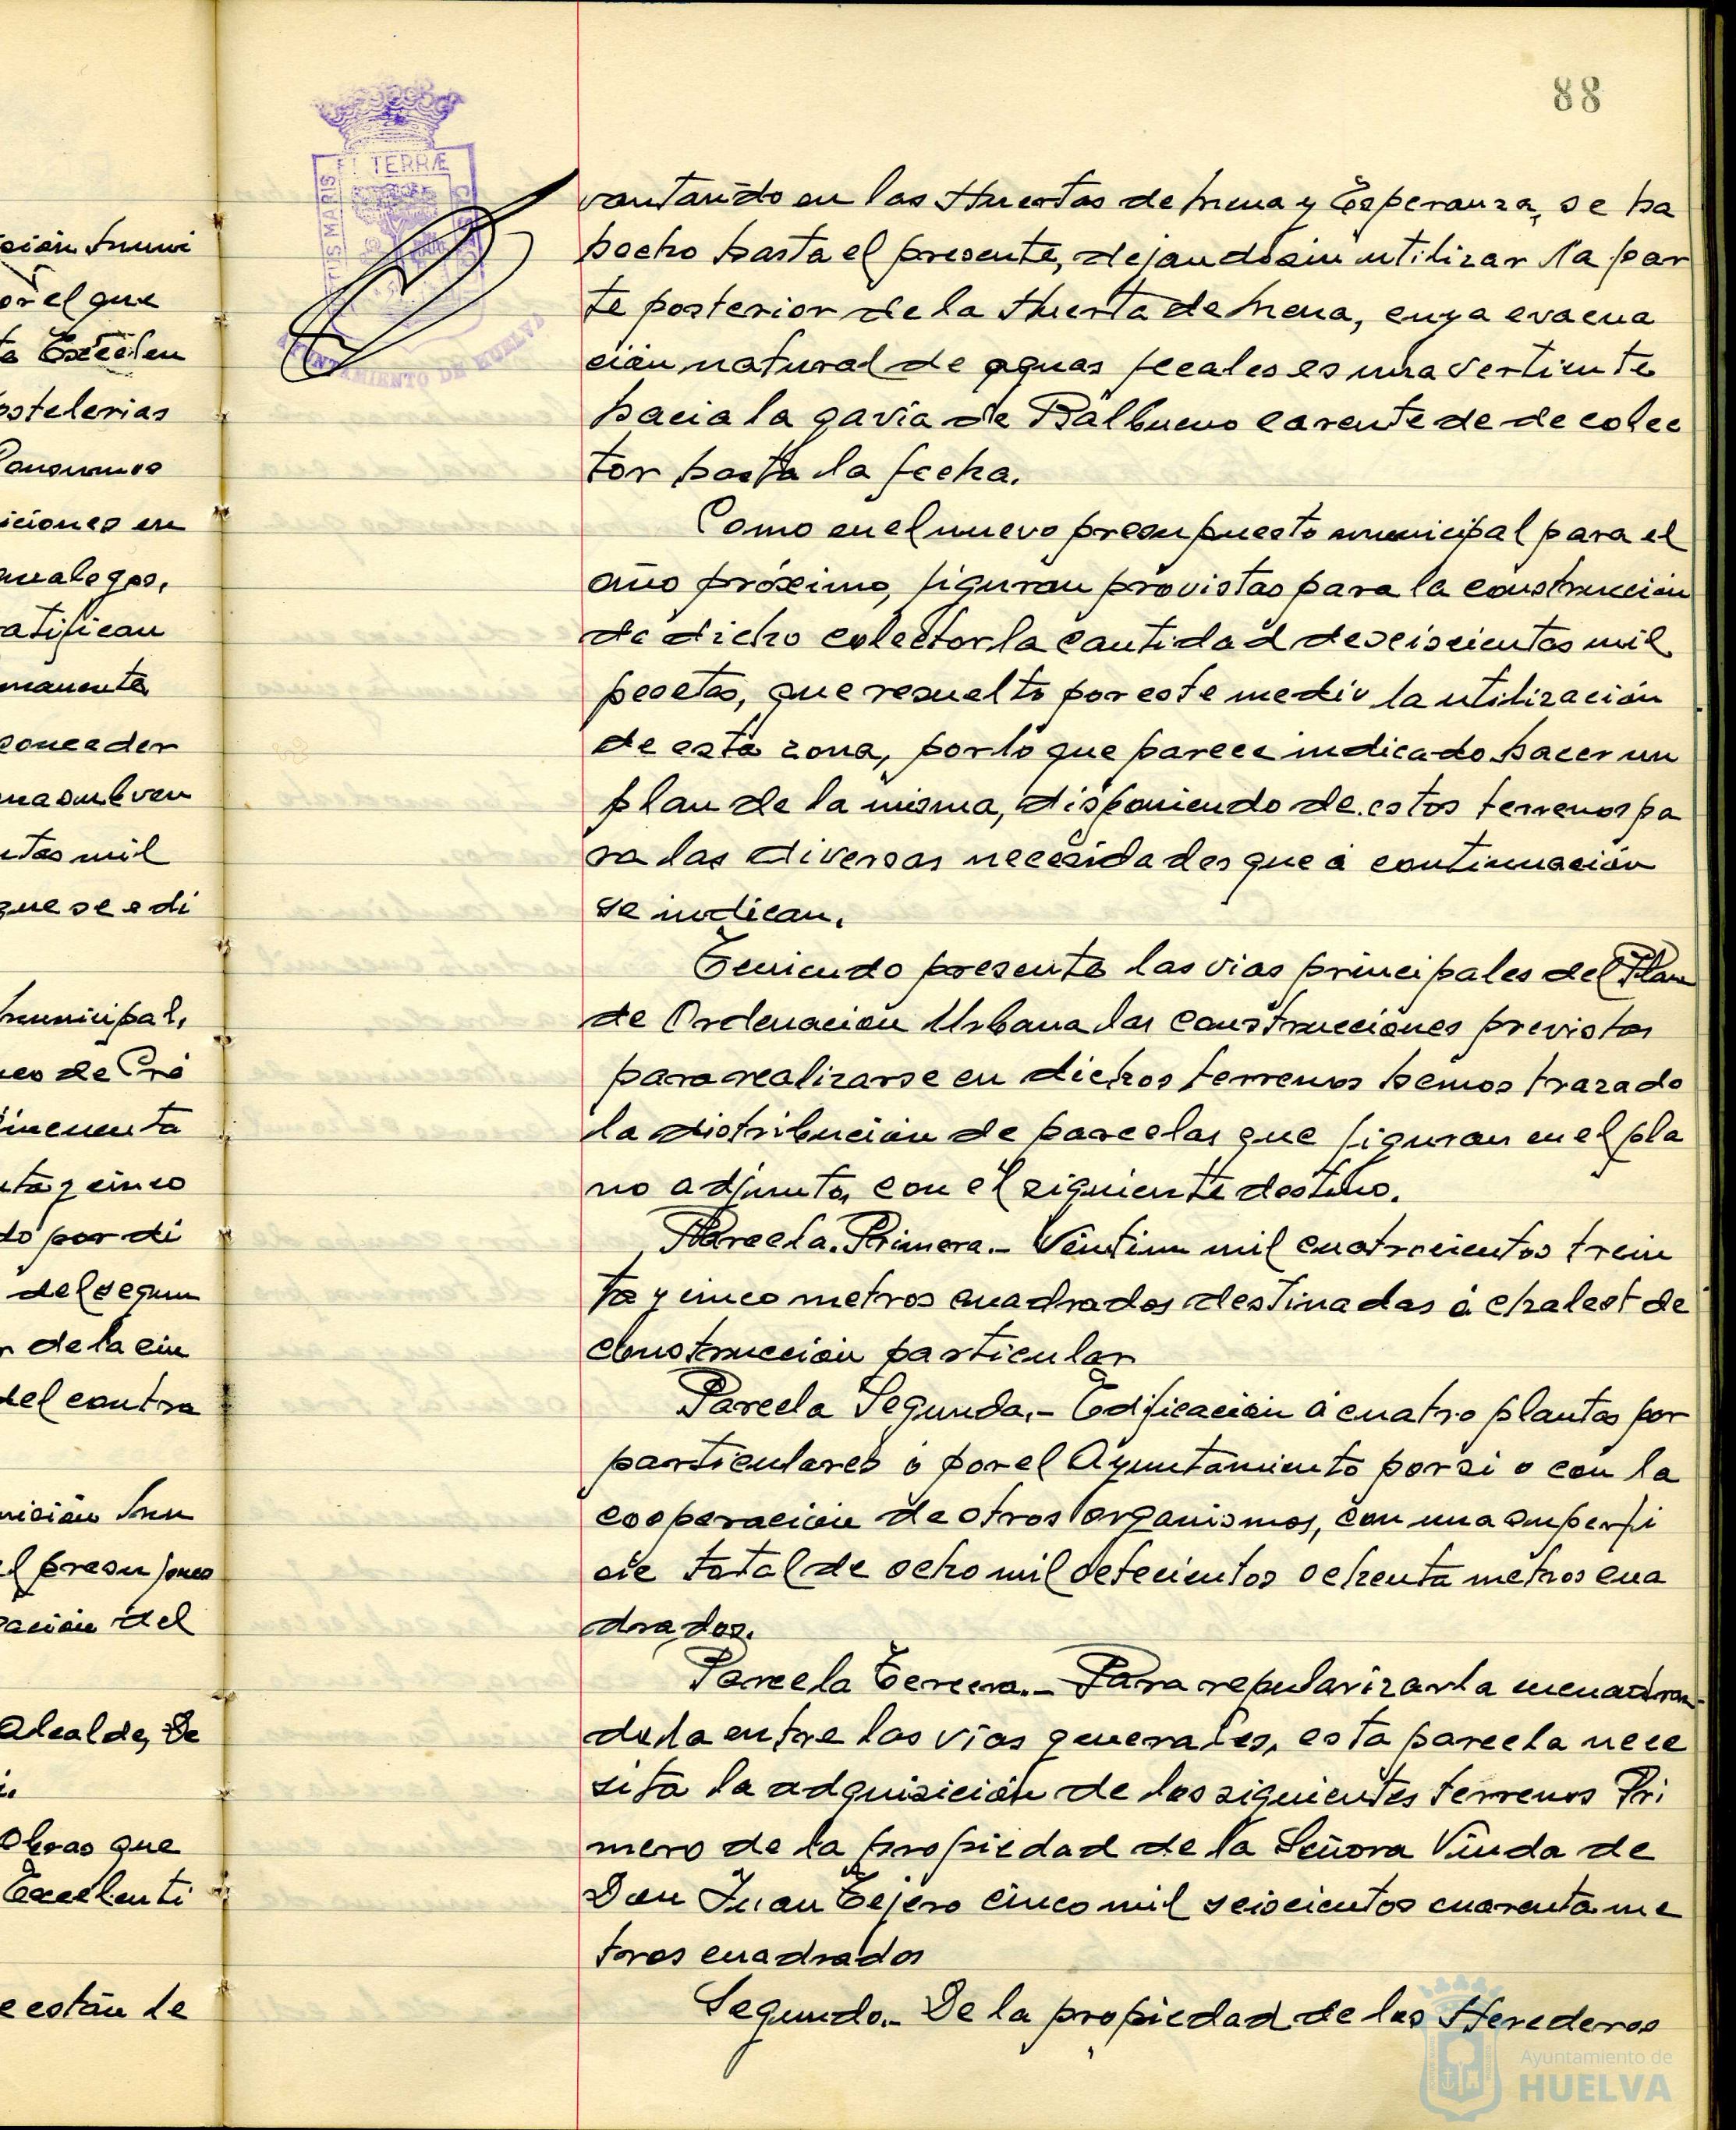 88
ET TERRÆ
PORTUS MARIS
CUSTODIA
AYUNTAMIENTO DE HUELVA
vantando en las Huertas de Mena y Esperanza, se ha
hecho hasta el presente, dejando sin utilizar la par
te posterior de la Huerta de Mena, cuya evacua
ción natural de aguas fecales es una vertiente
hacia la gavia de Balbueno carente de de colec
tor hasta la fecha.
Como en el nuevo presupuesto municipal para el
año próximo, figuran provistas para la construcción
de dicho colector la cantidad de seiscientas mil
pesetas, que resuelto por este medio la utilización
de esta zona, por lo que parece indicado hacer un
plan de la misma, disponiendo de estos terrenos pa
ra las diversas necesidades que á continuación
se indican.
Teniendo presente las vias principales del Plan
de Ordenación Urbana las construcciones previstas
para realizarse en dichos terrenos hemos trazado
la distribución de parcelas que figuran en el pla
no adjunto, con el siguiente destino.
Parcela. Primera.- Ventiun mil cuatrocientos trein
ta y cinco metros cuadrados destinadas á chalest de
construcción particular
Parcela Segunda.- Edificación á cuatro plantas por
particulares ó por el Ayuntamiento por si o con la
cooperación de otros organismos, con una superfi
cie total de ocho mil setecientos ochenta metros cua
drados.
Parcela Tercera.- Para regularizarla encuadran-
dola entre las vías generales, esta parcela nece
sita la adquisición de los siguientes terrenos Pri
mero de la propiedad de la Señora Viuda de
Don Juan Tejero cinco mil seiscientos cuarenta me
tros cuadrados
Segundo.- De la propiedad de los Herederos
or el que
ostelerias
iciones en
atifican
manente
conceder
ntas mil
que se edi
municipal,
eo de Cré
incuenta
nta y cinco
do por di
del segun
r de la cin
del contra
el presupues
ación del
Alcalde, De
Obras que
Excelenti
e están le
Ayuntamiento de
HUELVA